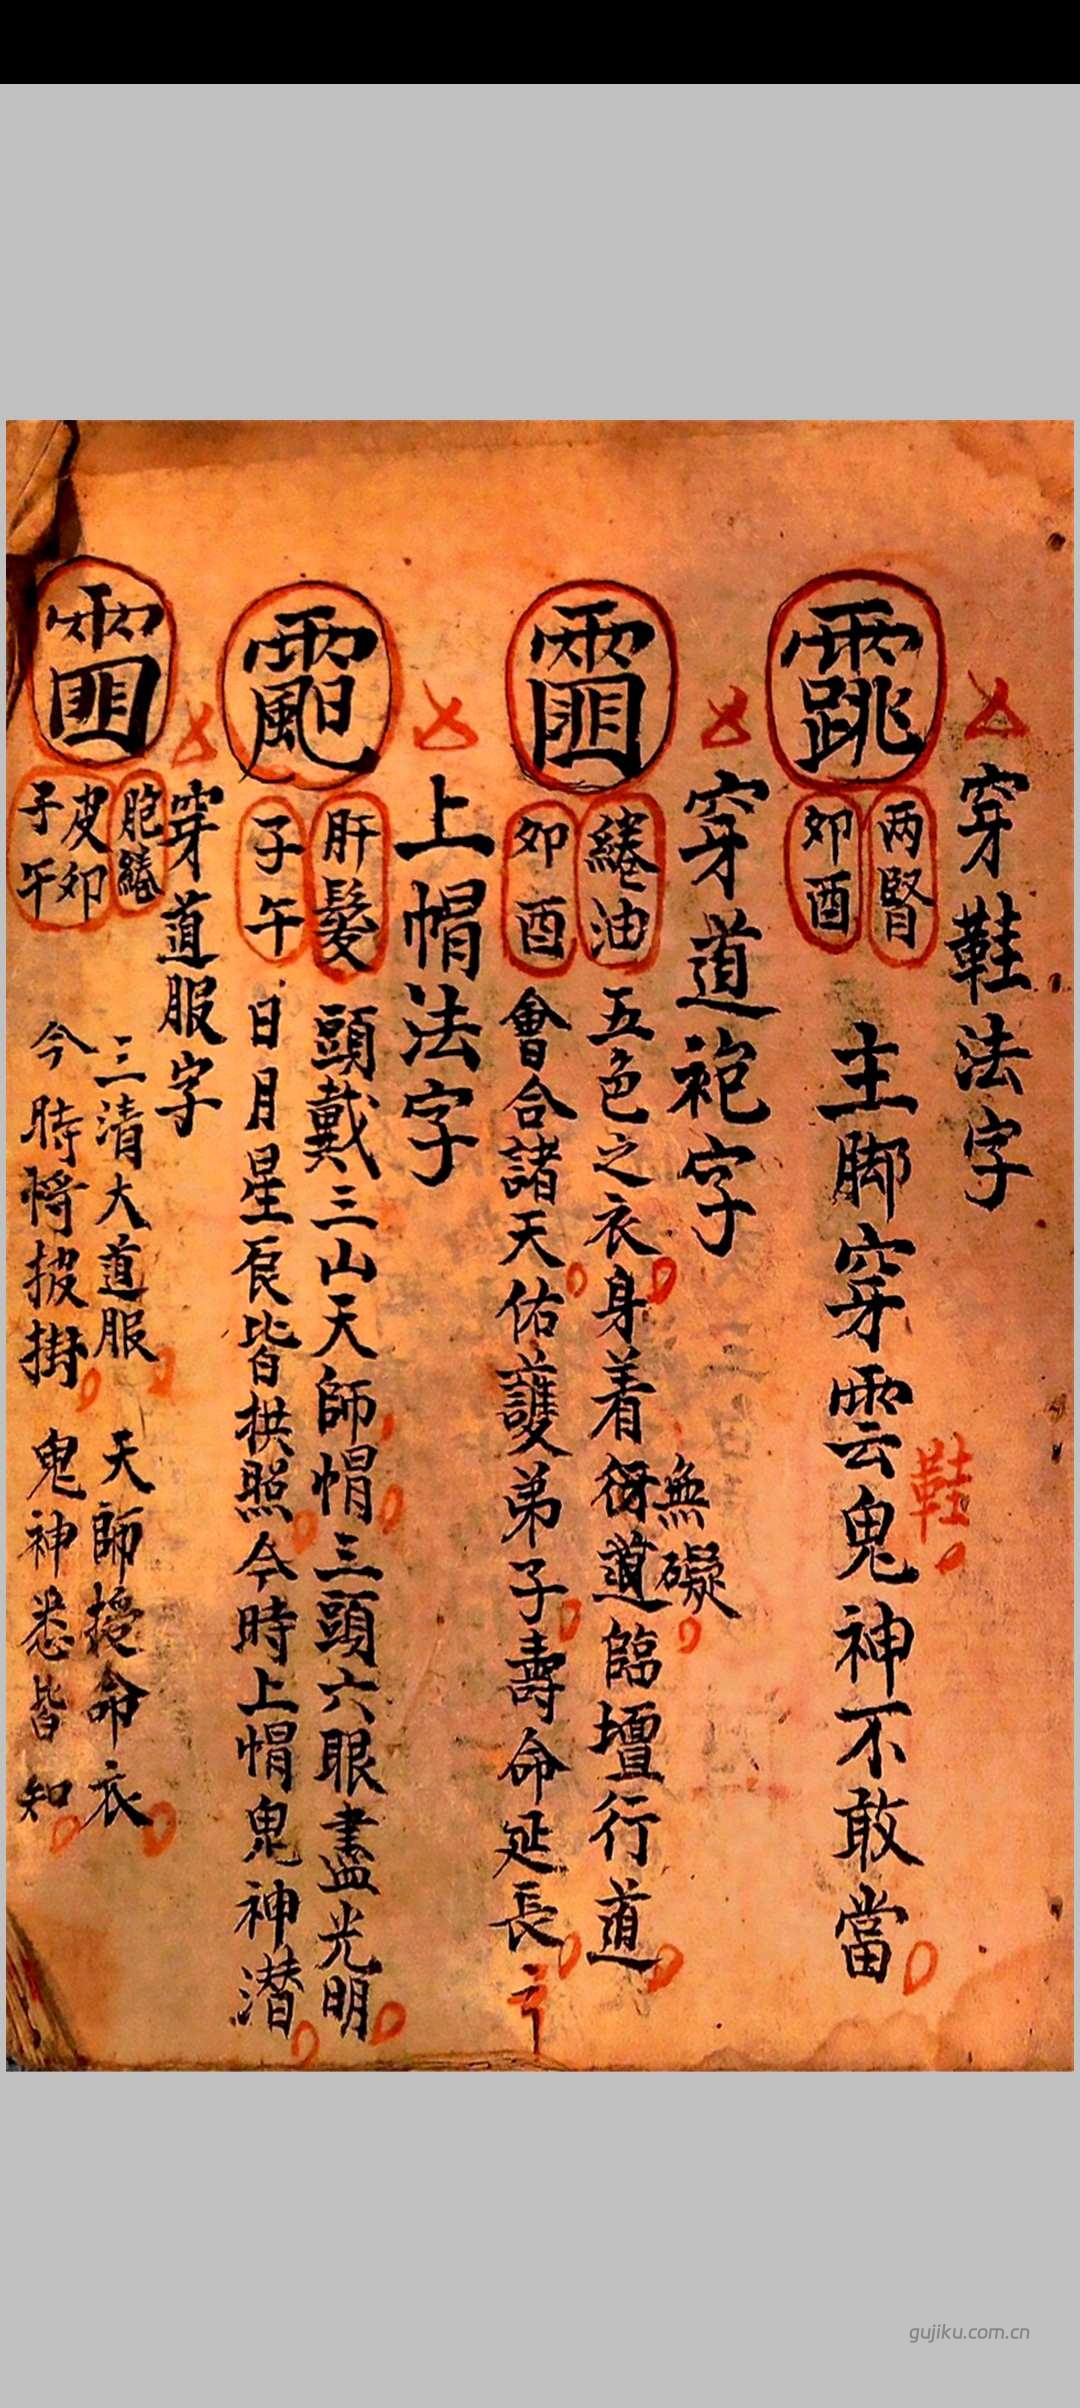 穿鞋法字
两腎
卯酉
主脚穿雲鞋鬼神不敢當
穿道袍字
綣油
卯酉
五色之衣身着無礙臨壇行道
會合諸天佑護弟子壽命延長
上帽法字
肝髮
子午
頭戴三山天師帽三頭六眼盡光明
日月星辰皆拱照今時上帽鬼神潜
穿道服字
胞綣
皮卯
子午
三清大道服 天師授命衣
今時將披掛 鬼神悉皆知
gujiku.com.cn